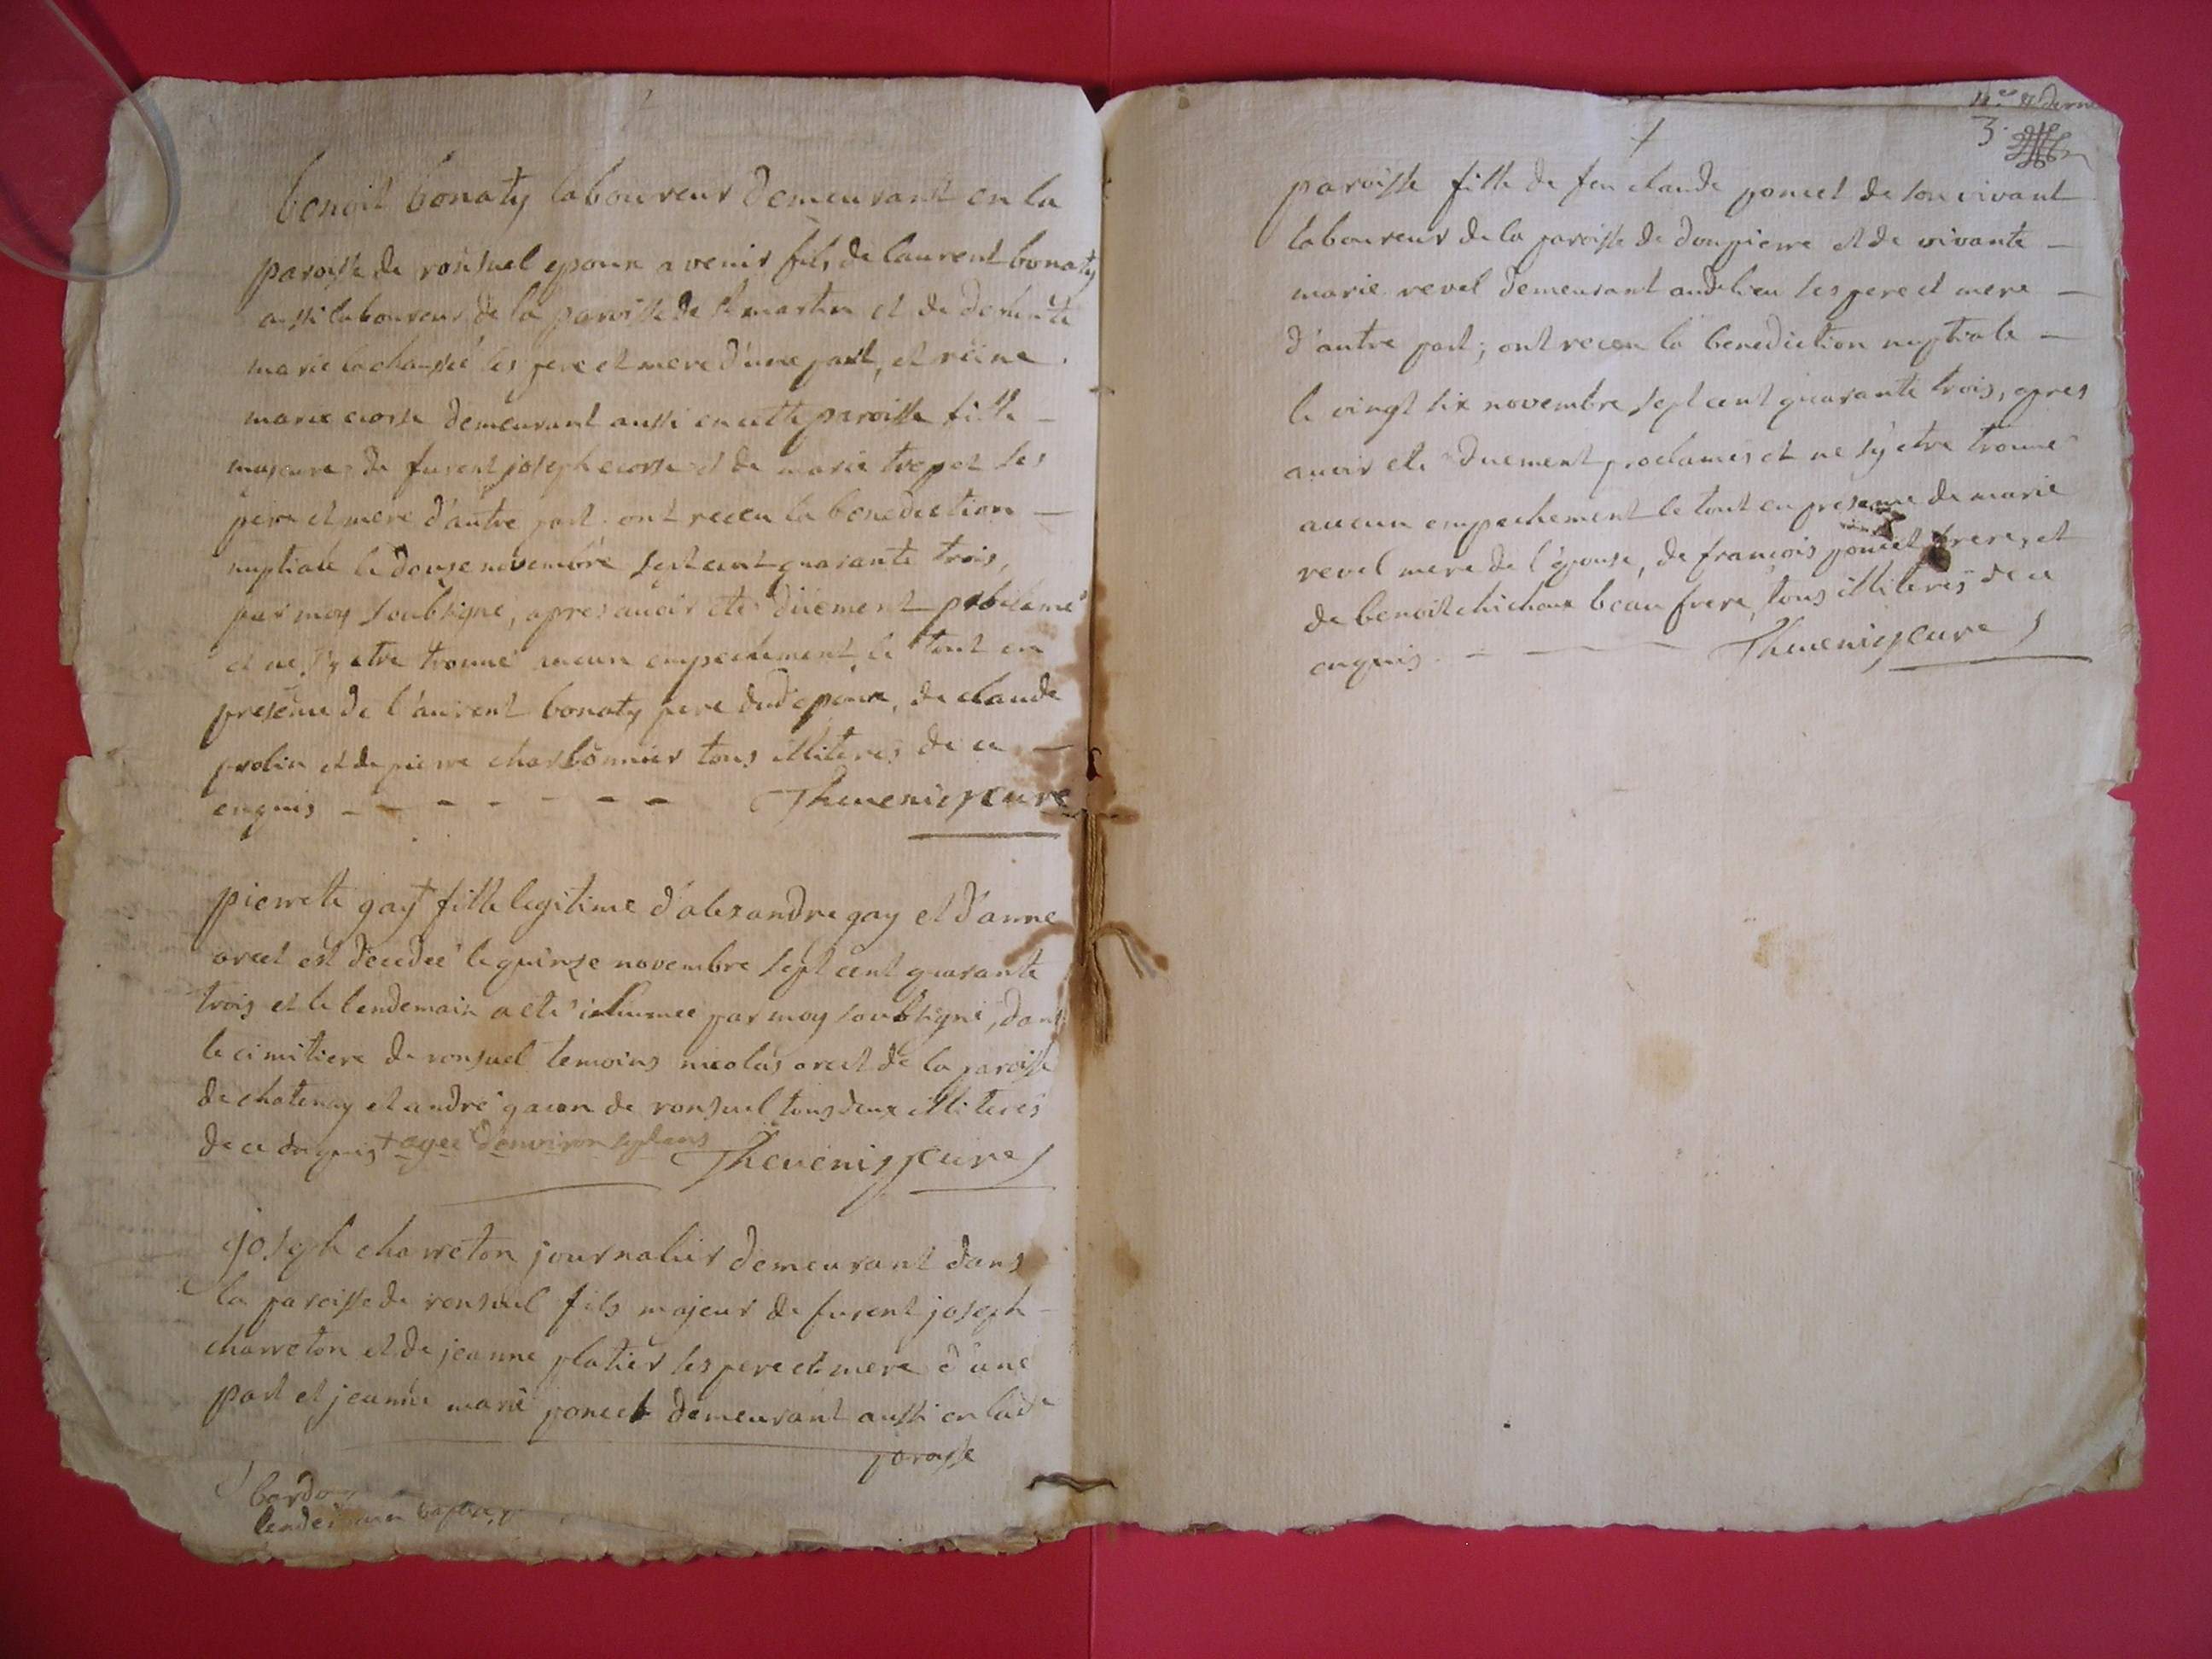 benoit bonaty laboureur demeurant en la
paroisse de ronsuel epoux a venir fils de laurent bonaty
aussi laboureur de la paroisse de st martin et de defunte
marie lachaussé ses pere et mere d'une part, et reine
marie corse demeurant aussi en cette paroisse fille
majeure de furent joseph corse et de marie trepet ses
pere et mere d'autre part. ont receu la benediction
nuptiale le douse novembre sept cent quarante trois,
par moy soubsigne, apres avoir eté düement proclamé
et ne s'y etre trouvé aucun empechement le tout en
presence de l'aurent bonaty pere dud epoux, de claude
prolin et de pierre charbonnier tous illiterés de ce
enquis Thevenis cure
pierrette gay + fille legitime d'alexandre gay et d'anne
oret est decedeé le quinze novembre sept cent quarante
trois et le lendemain a eté inhumee par moy soubsigné, dans
le cimitiere de ronsuel temoins nicolas oret de la paroisse
de chatenay et andré gacon de ronsuel tous deux illiterés
de ce enquis + agee d'environ sept ans Thevenis cure
joseph charreton journalier demeurant dans
la paroisse de ronsuel fils majeur de furent joseph
charreton et de jeanne platier ses pere et mere d'une
part et jeanne marie poncet demeurant aussi en lade
paroisse
3
paroisse fille de feu claude poncet de son vivant
laboureur de la paroisse de dompierre et de vivante
marie revel demeurant audi lieu ses pere et mere
d'autre part; ont receu la benediction nuptiale
le vingt six novembre sept cent quarante trois, apres
avoir eté duement proclamés et ne s'y etre trouvé
aucun empechement le tout en presence de marie
revel mere de l'épouse, de françois poncet frere, et
de benoit chichoux beau frere, tous illiterés de ce
enquis Thevenis cure